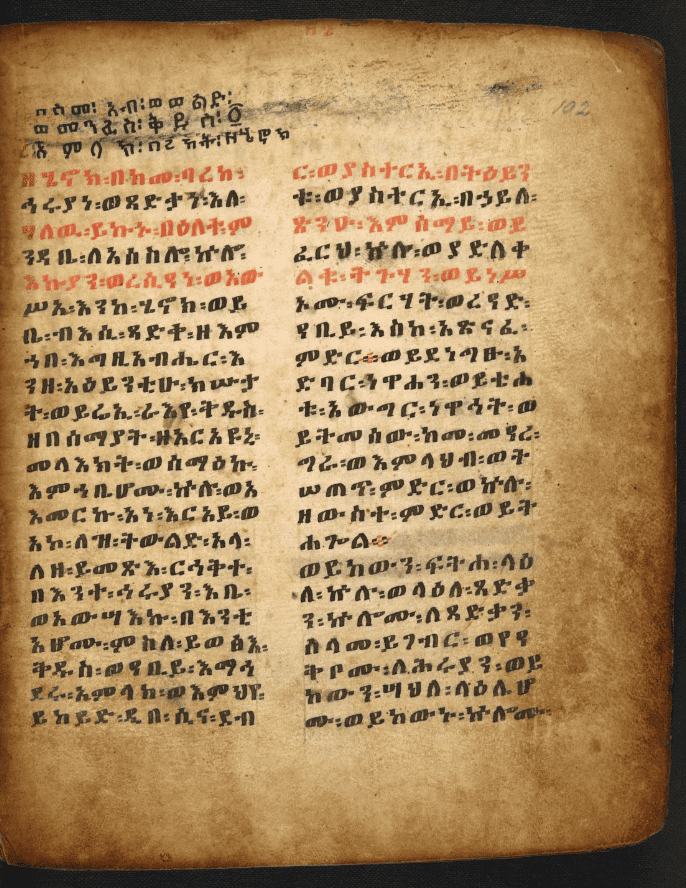 በስመ፡ አብ፡ ወወልድ፡
ወመንፈስ፡ ቅዱስ፡ ፩
አምላክ፡ በረከት፡ ዘሄኖክ
ዘሄኖክ፡በከመ፡ባረከ፡
ኅሩያነ፡ወጻድቃነ፡እለ፡
ሀለዉ፡ይኩኑ፡በዕለተ፡ም
ንዳቤ፡ለአሰስሎ፡ኵሎ፡
እኩያን፡ወረሲዓን፡ወአው
ሥአ፡እንከ፡ሄኖክ፡ወይ
ቤ፡ብእሲ፡ጻድቅ፡ዘእም
ኀበ፡እግዚአብሔር፡እ
ንዘ፡አዕይንቲሁ፡ክሡታ
ት፡ወይሬኢ፡ራእየ፡ቅዱስ፡
ዘበሰማያት፡ዘአርአዩኒ፡
መላእክት፡ወሰማዕኩ፡
እምኀቤሆሙ፡ኵሎ፡ወአ
እመርኩ፡አነ፡እርአይ፡ወ
አኮ፡ለዝ፡ትውልድ፡አላ፡
ለዘ፡ይመጽእ፡ርኅቅተ፡
በእንተ፡ኅሩያን፡እቤ፡
ወአውሣእኩ፡በእንቲ
አሆሙ፡ምስለ፡ይወፅእ፡
ቅዱስ፡ወዓቢይ፡እማኅ
ደሩ፡አምላከ፡ወእምህየ፡
ይከይድ፡ዲበ፡ሲና፡ደብ
ር፡ወያስተርኢ፡በትዕይን
ቱ፡ወያስተርኢ፡በኃይለ፡
ጽንዑ፡እምሰማይ፡ወይ
ፈርህ፡ኵሉ፡ወያድለቀ
ልቁ፡ትጉሃን፡ወይነሥ
ኦሙ፡ፍርሃት፡ወረዓድ፡
ዓቢይ፡እስከ፡አጽናፈ፡
ምድር፡ወይደነግፁ፡አ
ድባር፡ነዋሐን፡ወይቴሐ
ቱ፡አውግር፡ነዋኅት፡ወ
ይትመሰው፡ከመ፡መዓረ፡
ግራ፡ወእምላህብ፡ወት
ሠጠጥ፡ምድር፡ወኵሉ፡
ዘውስተ፡ምድር፡ወይት
ሐጐል።
ወይከውን፡ፍትሐ፡ላዕ
ለ፡ኵሉ፡ወላዕለ፡ጻድቃ
ን፡ኵሎሙ፡ለጻድቃን፡
ሰላመ፡ይገብር፡ወየዓ
ቅቦሙ፡ለኅሩያን፡ወይ
ከውን፡ሣህለ፡ላዕሌሆ
ሙ፡ወይከውኑ፡ኵሎሙ፡
102